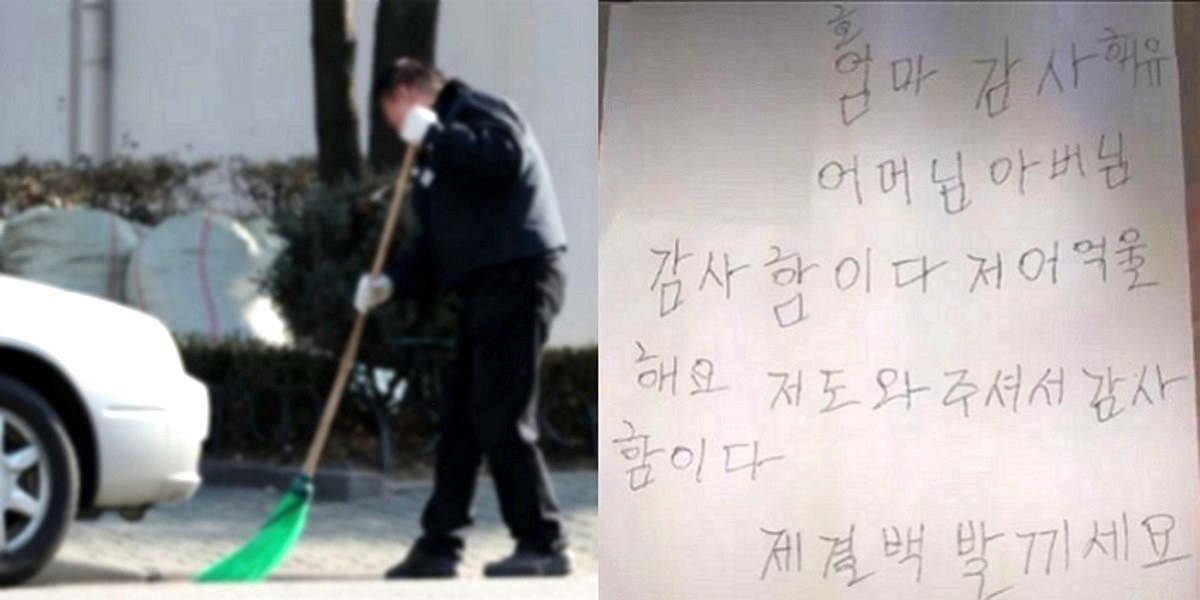 흐
엄마 감사해유
어머님 아버님
감사함이다 저어억울
해요 저도와주셔서 감사
함이다
제결백 발끼세요